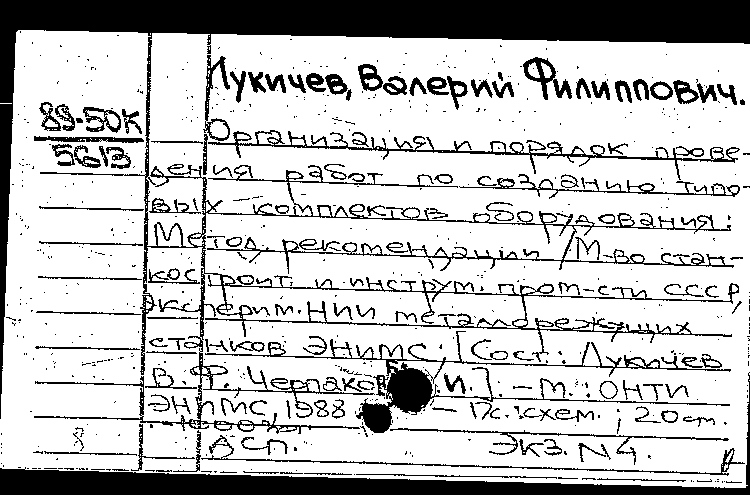 Лукичев, Валерий Филиппович.
89-50К
5613
Организация и порядок прове-
дения работ по созданию типо-
вых комплектов оборудования:
Метод. рекомендации / М-во стан-
костроит. и инструм. пром-сти СССР,
Эксперим. НИИ металлорежущих
станков ЭНИМС; [Сост.: Лукичев
В. Ф., Черпаков Б. И.]. - М.: ОНТИ
ЭНИМС, 1988 - с.: схем.; 20 см.
ДСП. Экз. N 4.